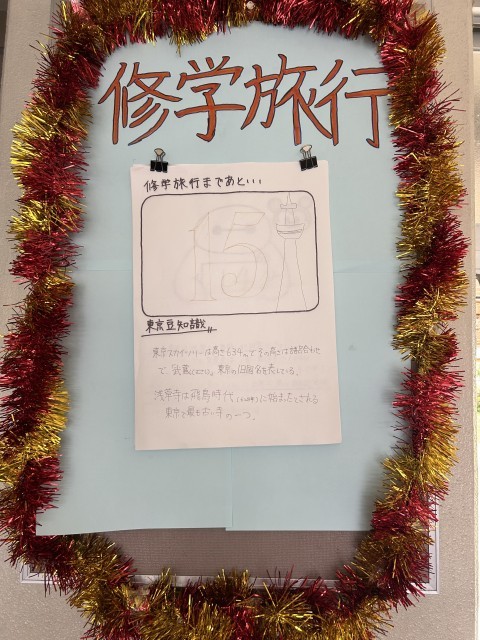 修学旅行
修学旅行まであと...
15
東京豆知識
東京スカイツリーは高さ634mでその高さは語呂合わせ
で、武蔵(むさし)。東京の旧国名を表している。
浅草寺は飛鳥時代に始まるとされる
東京で最も古い寺の一つ。